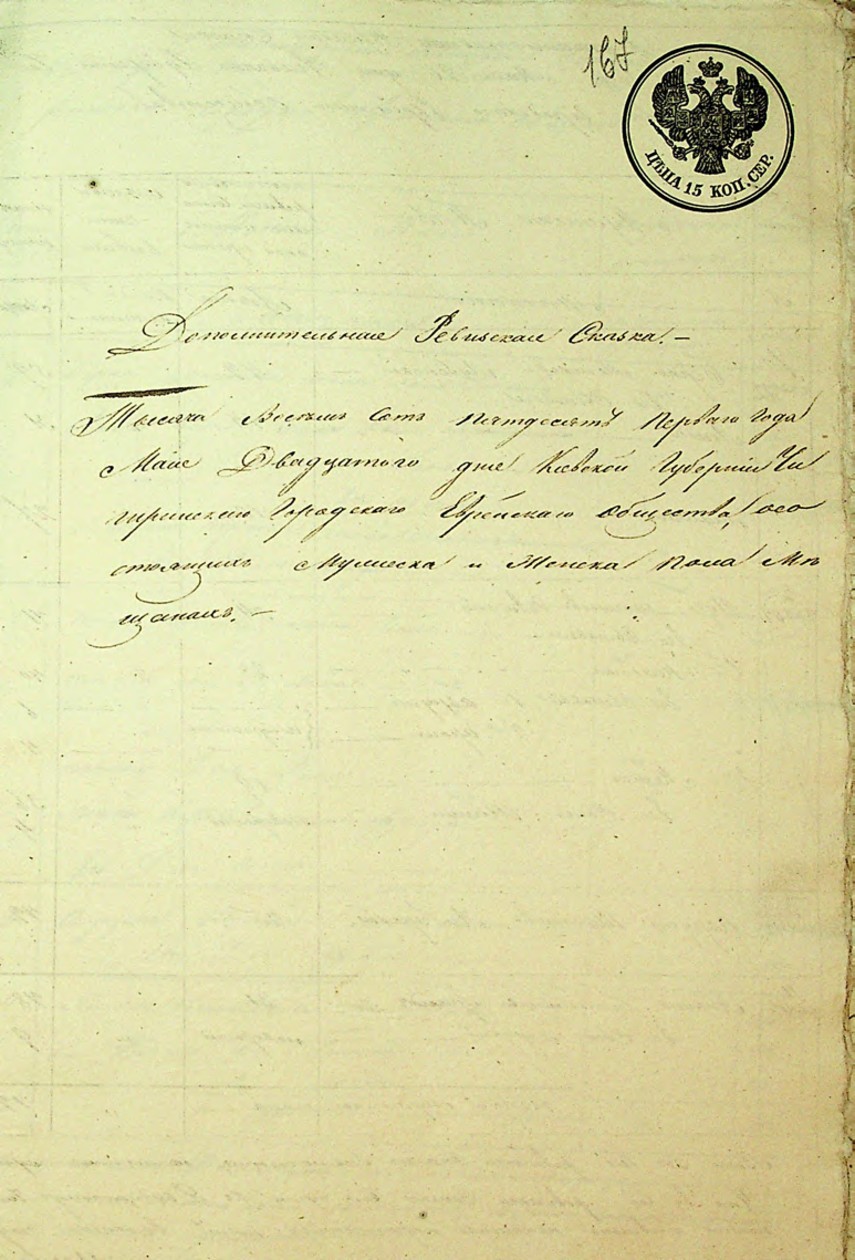 167
ЦѢНА 15 КОП. СЕР.
Дополнительная Ревизская Сказка. —
Тысяча Восемь Сотъ пятдесятъ перваго года
Мая Двадцатого дня Кіевской Губерніи Чи
гиринскаго Городскаго Еврейскаго общества, о со
стоящихъ Мужеска и Женска пола Мѣ
щанахъ. —